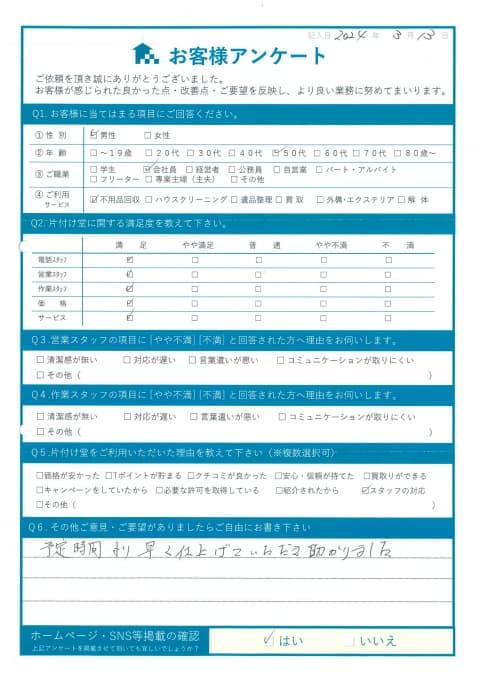 記入日 2024 年 3月 13日
お客様アンケート
ご依頼を頂き誠にありがとうございました。
お客様が感じられた良かった点・改善点・ご要望を反映し、より良い業務に努めてまいります。
Q1. お客様に当てはまる項目にご回答ください。
①性 別 ☑男性 ☐女性
②年 齢 ☐～19歳 ☐20代 ☐30代 ☐40代 ☑50代 ☐60代 ☐70代 ☐80歳～
③ご職業 ☐学生 ☑会社員 ☐経営者 ☐公務員 ☐自営業 ☐パート・アルバイト
☐フリーター ☐専業主婦（主夫） ☐その他
④ご利用サービス ☑不用品回収 ☐ハウスクリーニング ☐遺品整理 ☐買 取 ☐外構・エクステリア ☐解 体
Q2. 片付け堂に関する満足度を教えて下さい。
満 足 やや満足 普 通 やや不満 不 満
電話スタッフ ☑ ☐ ☐ ☐ ☐
営業スタッフ ☑ ☐ ☐ ☐ ☐
作業スタッフ ☑ ☐ ☐ ☐ ☐
価 格 ☑ ☐ ☐ ☐ ☐
サービス ☑ ☐ ☐ ☐ ☐
Q3. 営業スタッフの項目に[やや不満][不満]と回答された方へ理由をお伺いします。
☐清潔感が無い ☐対応が遅い ☐言葉遣いが悪い ☐コミュニケーションが取りにくい
☐その他（ ）
Q4. 作業スタッフの項目に[やや不満][不満]と回答された方へ理由をお伺いします。
☐清潔感が無い ☐対応が遅い ☐言葉遣いが悪い ☐コミュニケーションが取りにくい
☐その他（ ）
Q5. 片付け堂をご利用いただいた理由を教えて下さい（※複数選択可）
☐価格が安かった ☐Tポイントが貯まる ☐クチコミが良かった ☐安心・信頼が持てた ☐買取りができる
☐キャンペーンをしていたから ☐必要な許可を取得している ☐紹介されたから ☑スタッフの対応
☐その他（ ）
Q6. その他ご意見・ご要望がありましたらご自由にお書き下さい
予定時間より早く仕上げていただき助かりました
ホームページ・SNS等掲載の確認 ☑はい ☐いいえ
上記アンケートを掲載させて頂いても宜しいでしょうか？